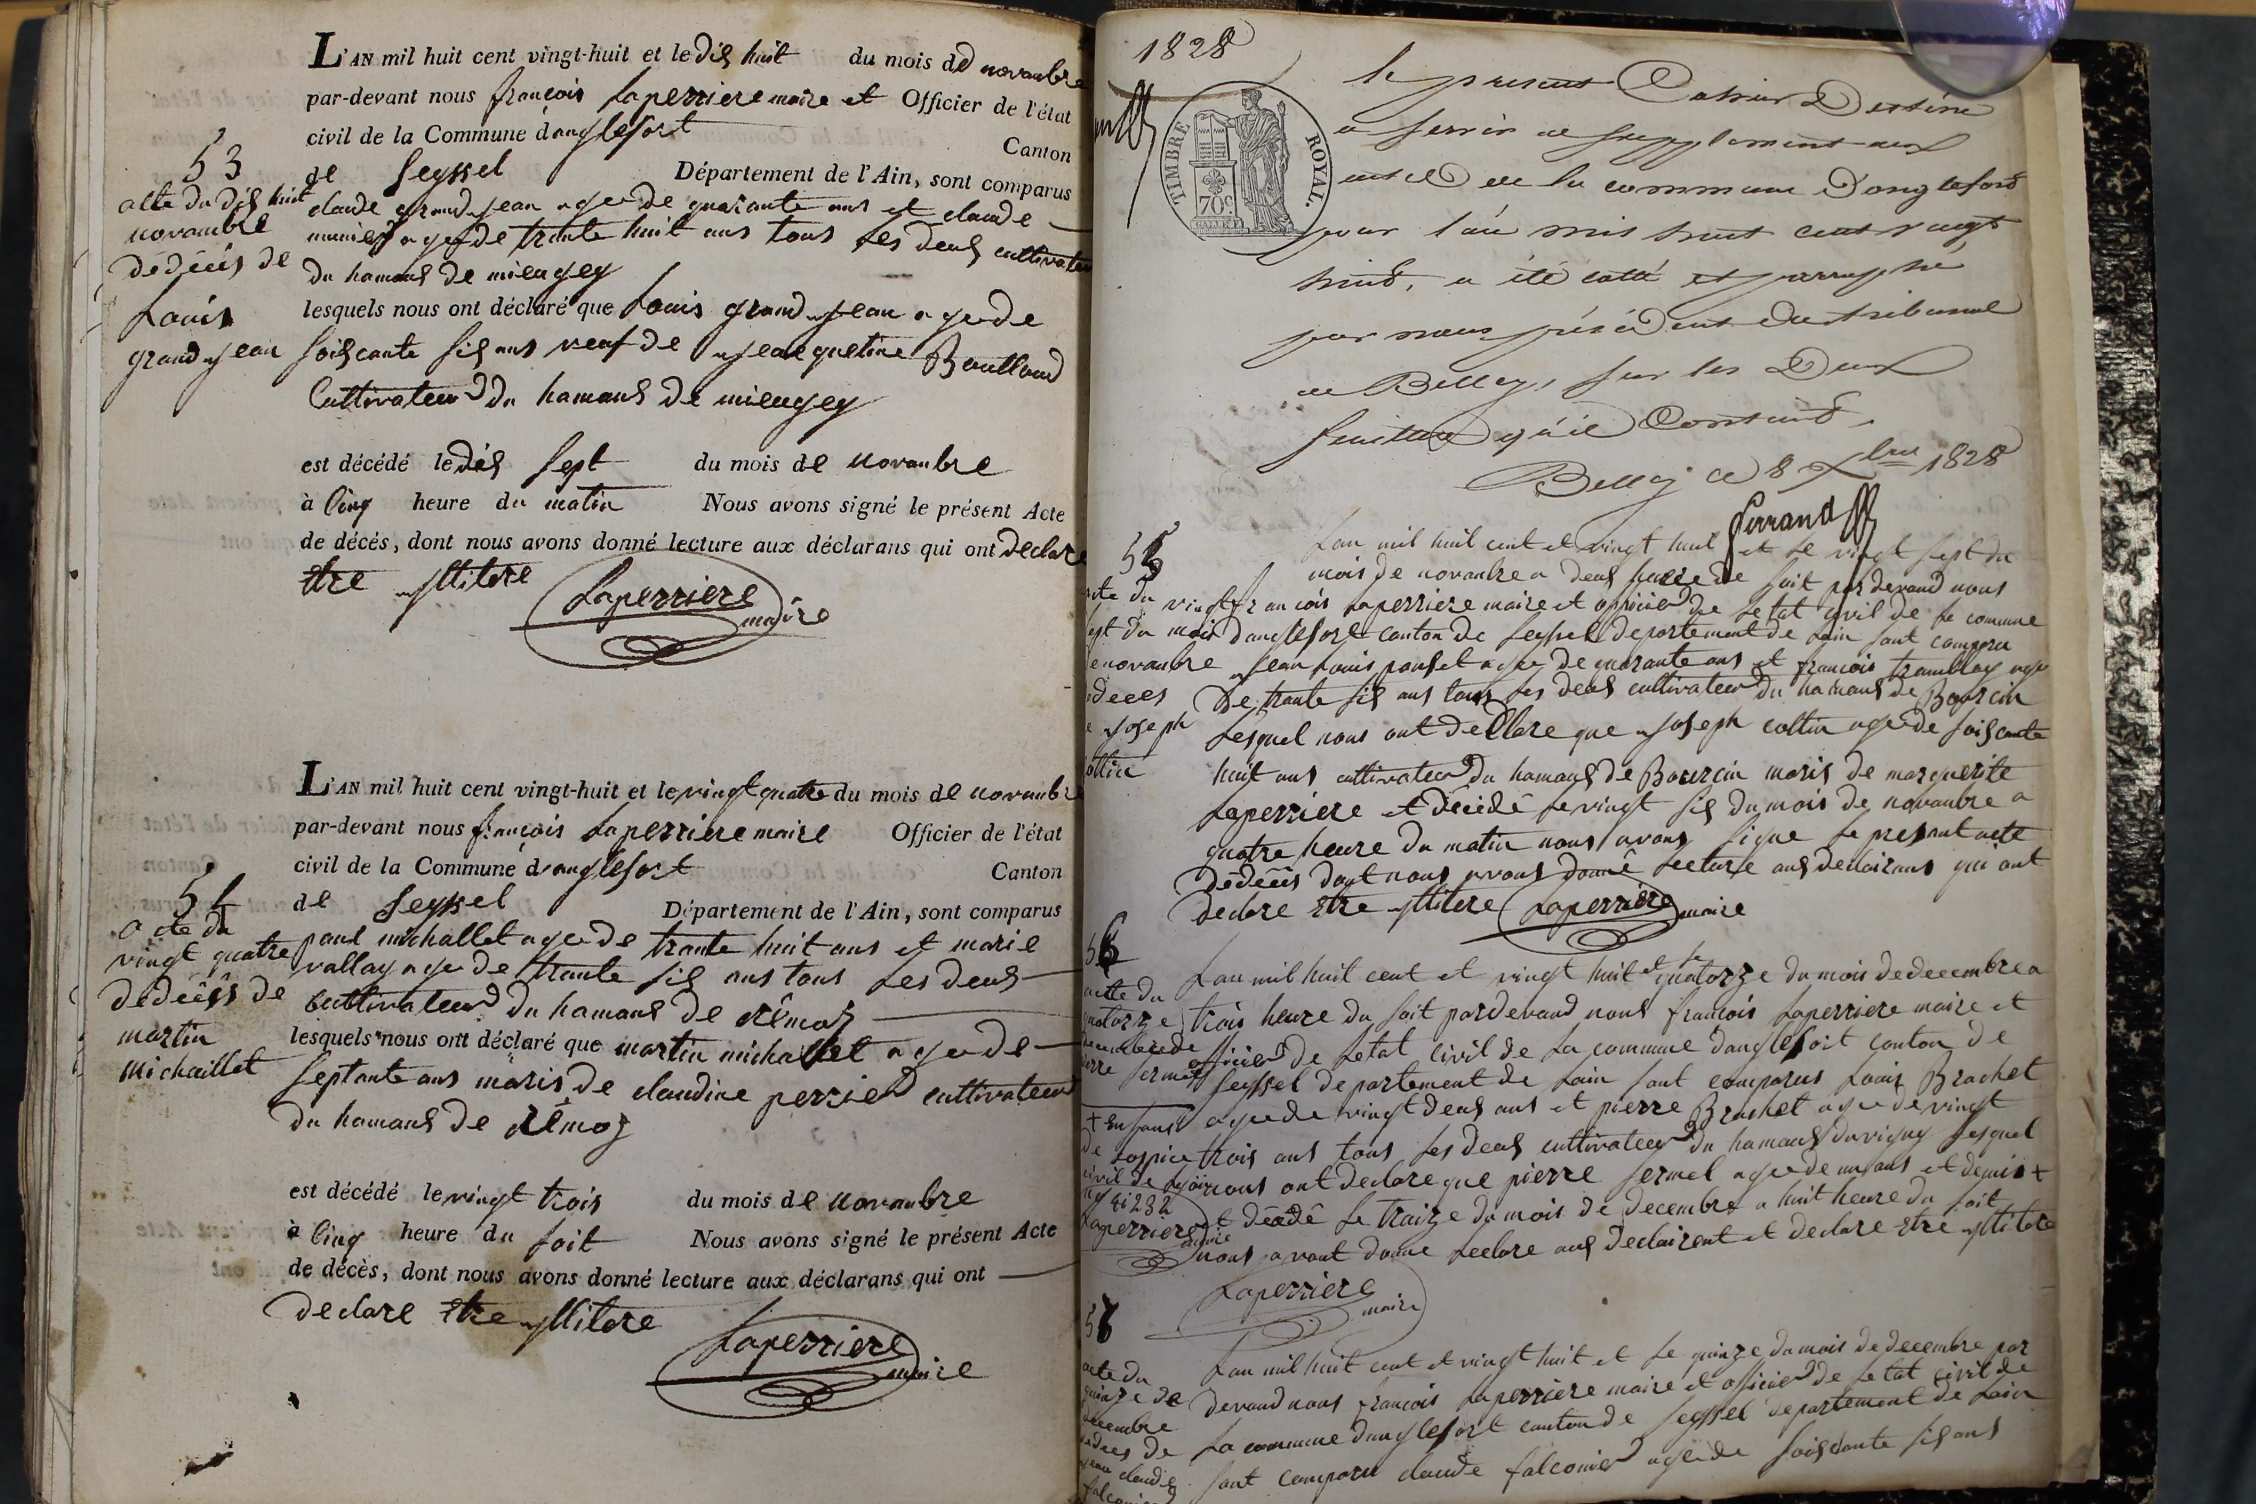 L'AN mil huit cent vingt-huit et le dis huit du mois de novambre
par-devant nous françois Laperriere maire et Officier de l'état
civil de la Commune d'anglefort Canton
de Seyssel Département de l'Ain, sont comparus
claude grand jean agee de quarante ans et claude
munier agee de trante huit ans tous les deus cultivateur
du hamaus de mieugey
lesquels nous ont déclaré que Louis grand jean agee de
soiscante sis ans veuf de jeacquetine Boulloud
Cultivateur du hamaus de mieugey
est décédé le dis sept du mois de novanbre
à Cinq heure du matin Nous avons signé le présent Acte
de décès, dont nous avons donné lecture aux déclarans qui ont declare
etre yllitere
Laperriere
maire
53
acte du dis huit
novambre
dédécès de
Louis
grand jean
L'AN mil huit cent vingt-huit et le vingt quatre du mois de novambre
par-devant nous françois Laperriere maire Officier de l'état
civil de la Commune d'anglefort Canton
de Seyssel Département de l'Ain, sont comparus
paul michallet agee de trante huit ans et marie
vallay agee de trante sis ans tous les deus
cultivateur du hamaus de rêmoz
lesquels nous ont déclaré que martin michallet agee de
septante ans maris de claudine perrier cultivateur
du hamaus de rêmoz
est décédé le vingt trois du mois de novambre
à Cinq heure du soit Nous avons signé le présent Acte
de décès, dont nous avons donné lecture aux déclarans qui ont
declare etre yllitere
Laperriere
maire
54
acte du
vingt quatre
dedécès de
martin
michaillet
1828
TIMBRE ROYAL.
70c
le present Cahier Destiné
a servir de supplement aux
actes de la commune D'anglefort
pour l'an mil huit cent vingt
huit, a été cotté et parraphé
par nous président du tribunal
de Belley, sur les Deux
feuillets qu'il Contient.
Belley ce 8 Xbre 1828
Ferrand
55
acte du vingt
sept du mois
de novanbre
dedeces
de joseph
cottin
Lan mil huit cent et vingt huit et le vingt sept du
mois de novanbre a deus heure de soit pardevand nous
françois Laperriere maire et officier de letat civil de la commune
danglefort canton de seyssel departement de Lain sont comparu
jean Louis ponset agee de quarante ans et françois tramblay agee
de trante sis ans tous les deus cultivateur du hamaus de Bourcin
Lesquel nous ont declare que joseph cottin agee de soiscante
huit ans cultivateur du hamaus de Bourcin maris de marguerite
Laperriere et décédé le vingt sis du mois de novanbre a
quatre heure du matin nous avons signe le presant acte
dedécès dont nous avons donné lecture aus declairans qui ont
declare etre yllitere Laperriere maire
56
acte du
quatorze
decembre de
pierre sermet
Lan mil huit cent et vingt huit et le quatorze du mois de decembre a
trois heure du soit pardevand nous françois Laperriere maire et
officier de letat civil de La commune danglefort canton de
seyssel departement de Lain sont comparus Louis Brachet
agee de vingt deus ans et pierre Brachet agee de vingt
trois ans tous les deus cultivateur du hamaus duvigny lesquel
nous ont declare que pierre sermet agee de un ans et demis +
et décédé le traize du mois de decembre a huit heure du soit
nous avont donne lecture aus declairent et declare etre yllitere
Laperriere
maire
+ enfant
de Lospice
civil de Lyon
n° 41232
Laperriere
maire
57
acte du
quinze de
decembre
dedeces de
jean claude
falconier
Lan mil huit cent et vingt huit et le quinze du mois de decembre par
devand nous françois Laperriere maire et officier de letat civil de
La commune danglefort canton de seyssel departement de Lain
sont comparu claude falconier agee de soiscante sis ans